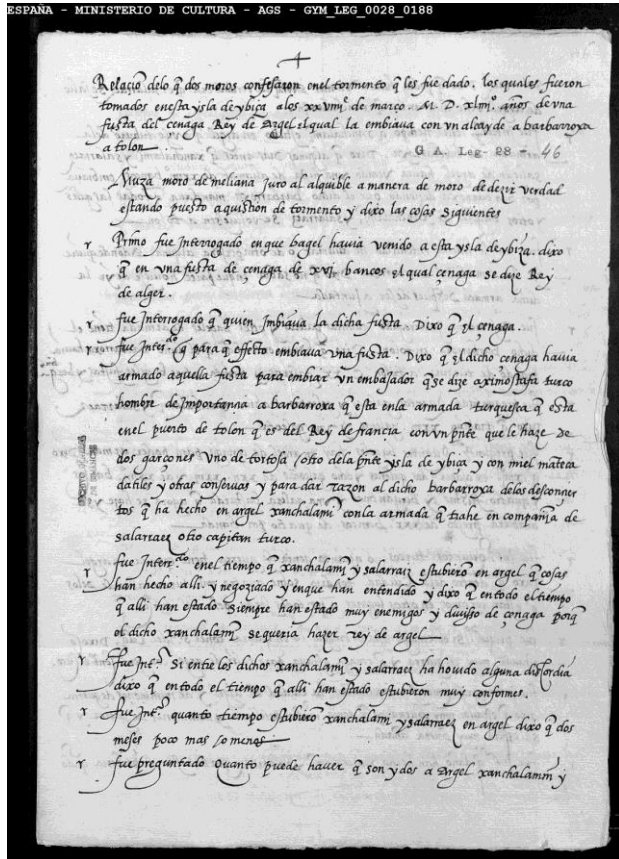 ESPAÑA - MINISTERIO DE CULTURA - AGS - GYM_LEG_0028_0188
Relaciõ delo q̃ dos moros confesaron enel tormento q̃ les fue dado. los quales fueron
tomados enesta ysla de ybiça alos xxviiiº de março. M. D. xliiiiº. años de vna
fusta del cenaga Rey de Argel el qual la embiaua con vn alcayde a barbarroxa
a tolon.
G A. Leg- 28 - 46
Muza moro de meliana juro al alquible a manera de moro de dezir verdad
estando puesto a quistion de tormento y dixo las cosas siguientes
r Primo fue Interrogado en que bagel hauia venido a esta ysla de ybiza. dixo
q̃ en vna fusta de cenaga de xvj. bancos el qual cenaga se dize Rey
de alger.
r fue Interrogado q̃ quien Imbiaua la dicha fusta. Dixo q̃ el cenaga.
r fue Inter.do q̃ para q̃ effecto embiaua vna fusta. Dixo q̃ el dicho cenaga hauia
armado aquella fusta para embiar vn embaxador q̃ se dize aximostafa turco
hombre de Importanna a barbarroxa q̃ esta enla armada turquesta q̃ esta
enel puerto de tolon q̃ es del Rey de francia con vn pñte que le haze de
dos garcones vno de tortosa / otro dela pñte ysla de ybiça y con miel mãteca
datiles y otras conseruas y para dar razon al dicho barbarroxa delos desconçer
tos q̃ ha hecho en argel xanchalami conla armada q̃ trahe en compañia de
salarraez otro capitan turco.
r fue Interr.do enel tiempo q̃ xanchalami y salarraiz estubierõ en argel q̃ cosas
han hecho alli y negoziado y enque han entendido y dixo q̃ en todo el tiempo
q̃ alli han estado siempre han estado muy enemigos y diuiso de cenaga porq̃
el dicho xanchalami se queria hazer rey de argel
r fue Int.º Si entre los dichos xanchalami y salarraez ha houido alguna discordia
dixo q̃ en todo el tiempo q̃ alli han estado estubieron muy conformes.
r fue Int.º quanto tiempo estubierõ xanchalami y salarraez en argel dixo q̃ dos
meses poco mas / o menos
r fue preguntado Quanto puede hauer q̃ son ydos a Argel xanchalamin y